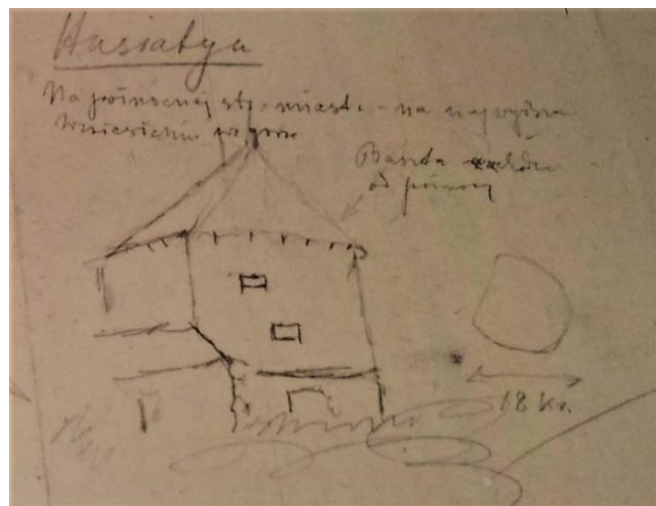 Husiatyn
Na północnej str. miasta – na najwyższem
wzniesieniu w górze
Baszta
od północy
18 kr.